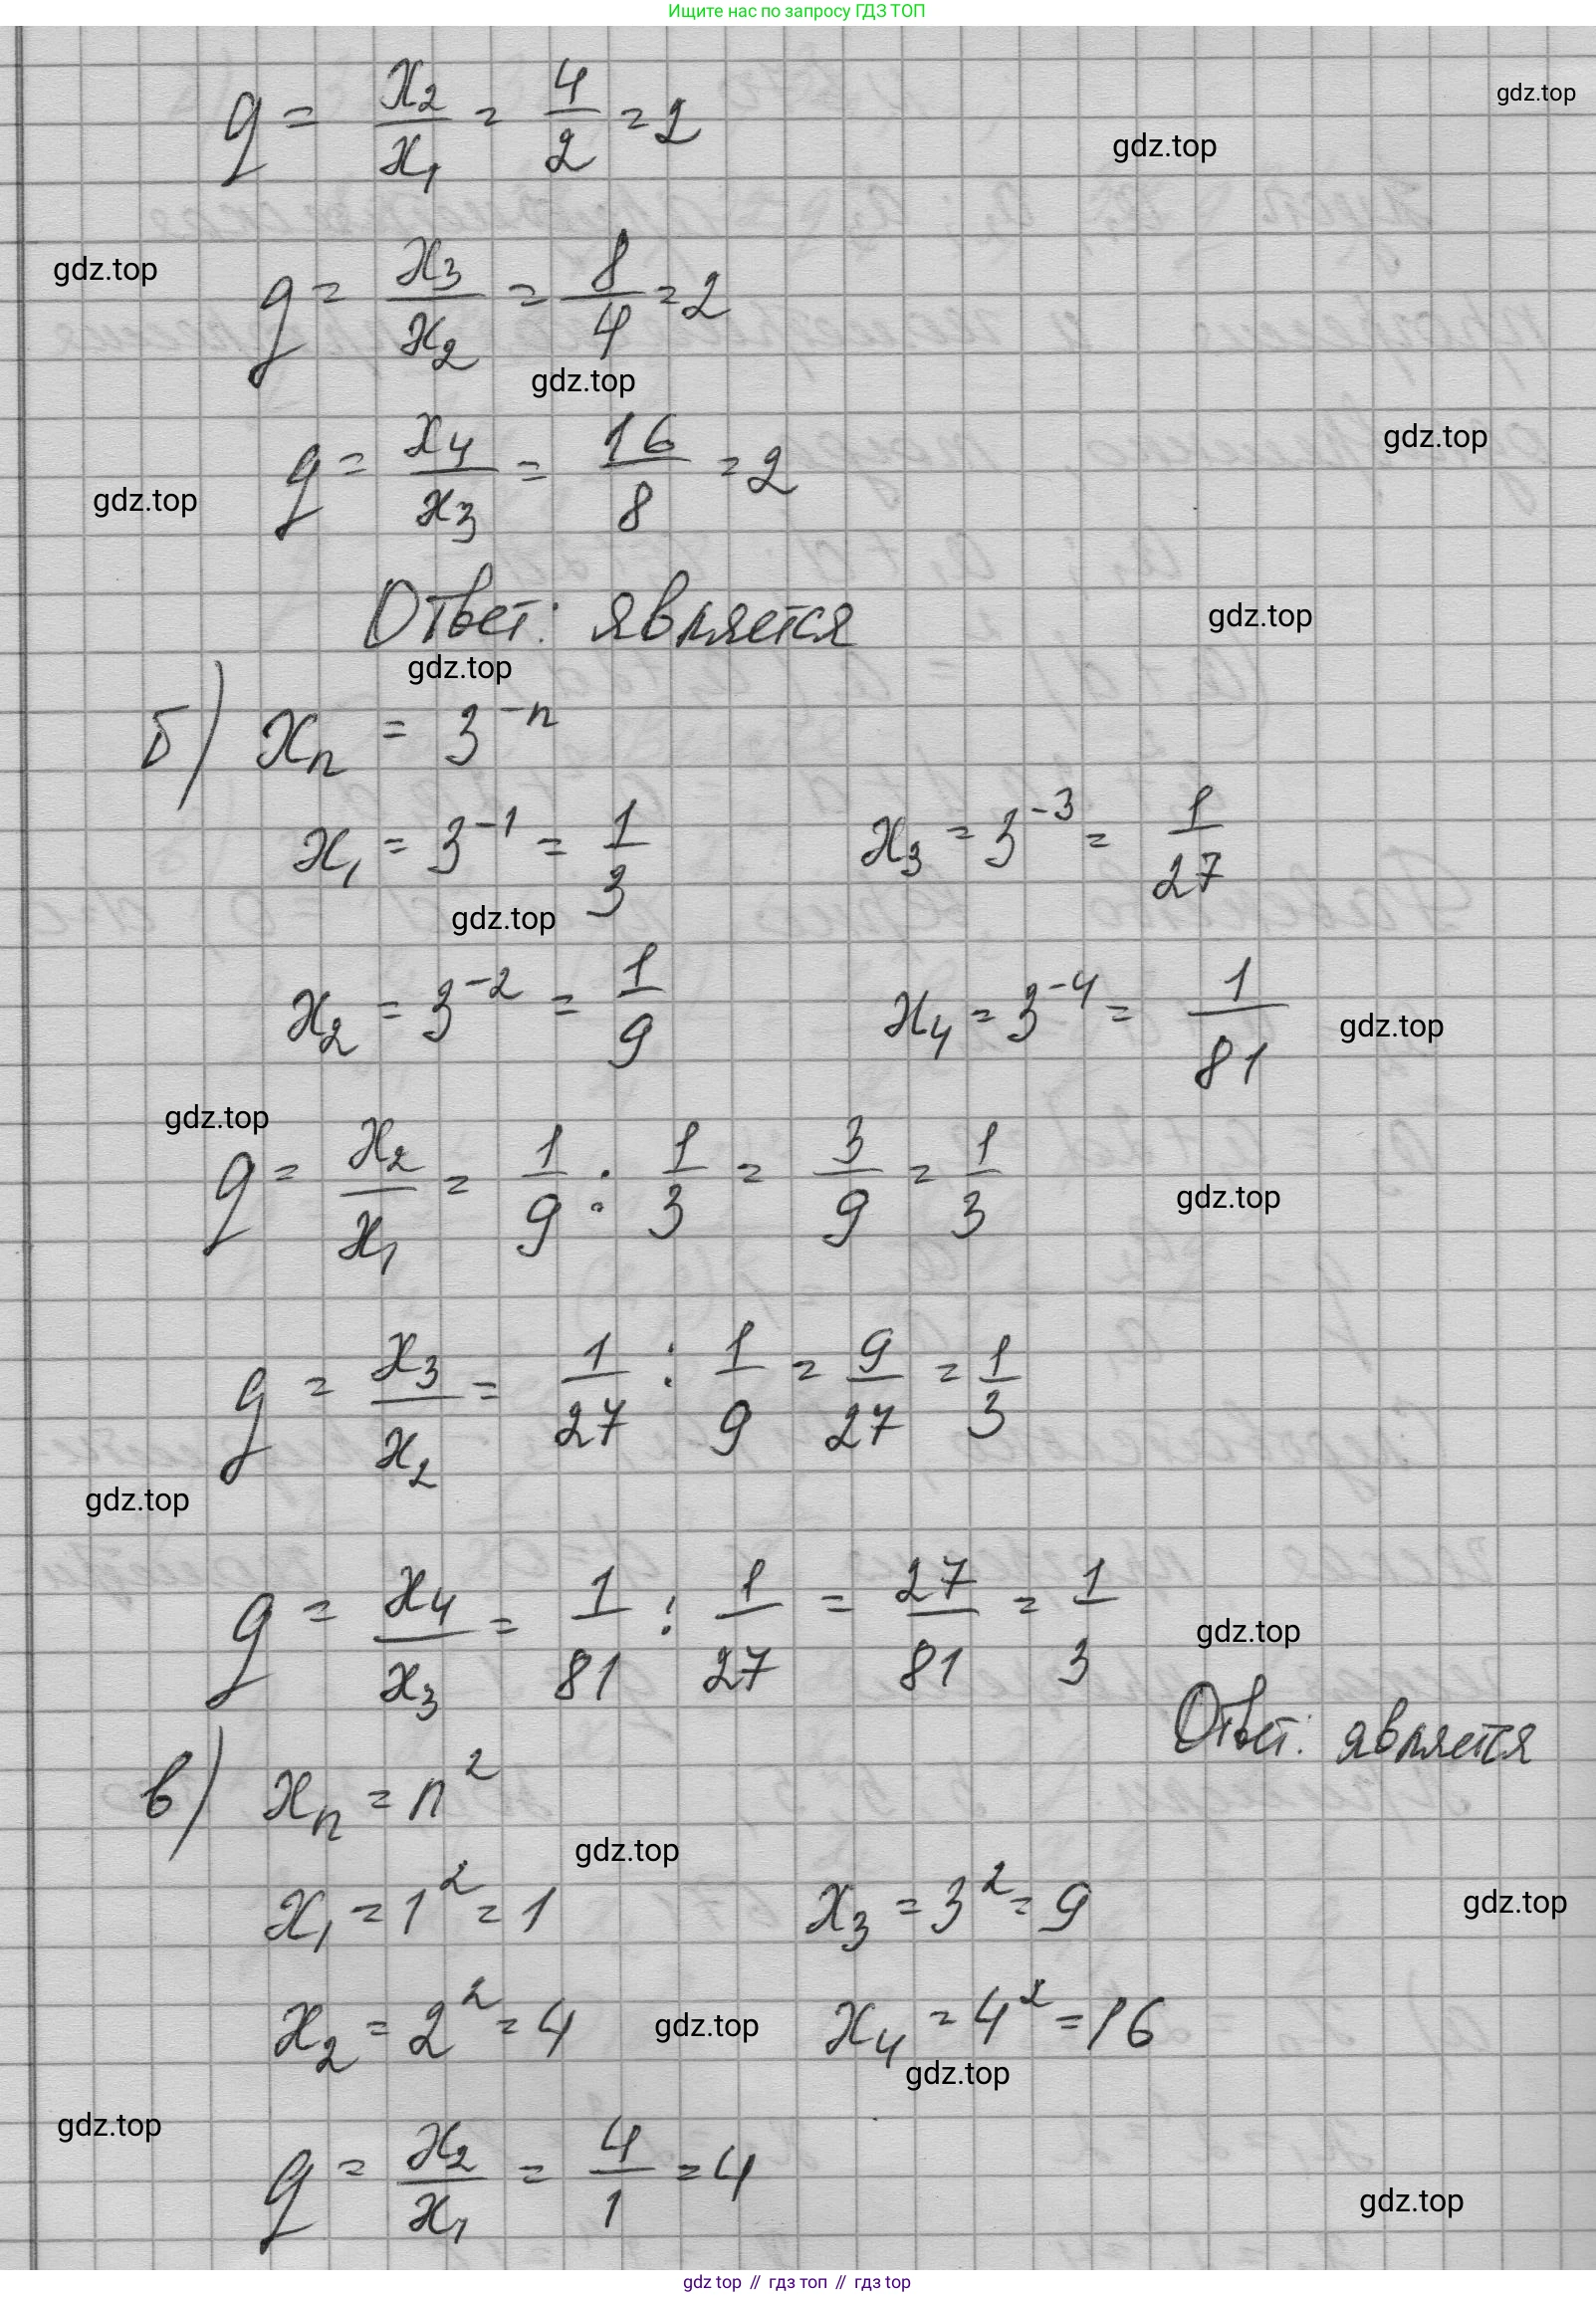 Ищите нас по запросу ГДЗ ТОП
gdz.top
q = x₂/x₁ = 4/2 = 2
gdz.top
gdz.top
q = x₃/x₂ = 8/4 = 2
gdz.top
gdz.top
q = x₄/x₃ = 16/8 = 2
gdz.top
Ответ: является
gdz.top
gdz.top
б) xₙ = 3⁻ⁿ
x₁ = 3⁻¹ = 1/3 x₃ = 3⁻³ = 1/27
gdz.top
x₂ = 3⁻² = 1/9 x₄ = 3⁻⁴ = 1/81
gdz.top
gdz.top
q = x₂/x₁ = 1/9 : 1/3 = 3/9 = 1/3
gdz.top
q = x₃/x₂ = 1/27 : 1/9 = 9/27 = 1/3
gdz.top
q = x₄/x₃ = 1/81 : 1/27 = 27/81 = 1/3
gdz.top
Ответ: является
в) xₙ = n²
gdz.top
x₁ = 1² = 1 x₃ = 3² = 9
gdz.top
x₂ = 2² = 4 x₄ = 4² = 16
gdz.top
gdz.top
gdz.top
q = x₂/x₁ = 4/1 = 4
gdz.top
gdz top // гдз топ // гдз top